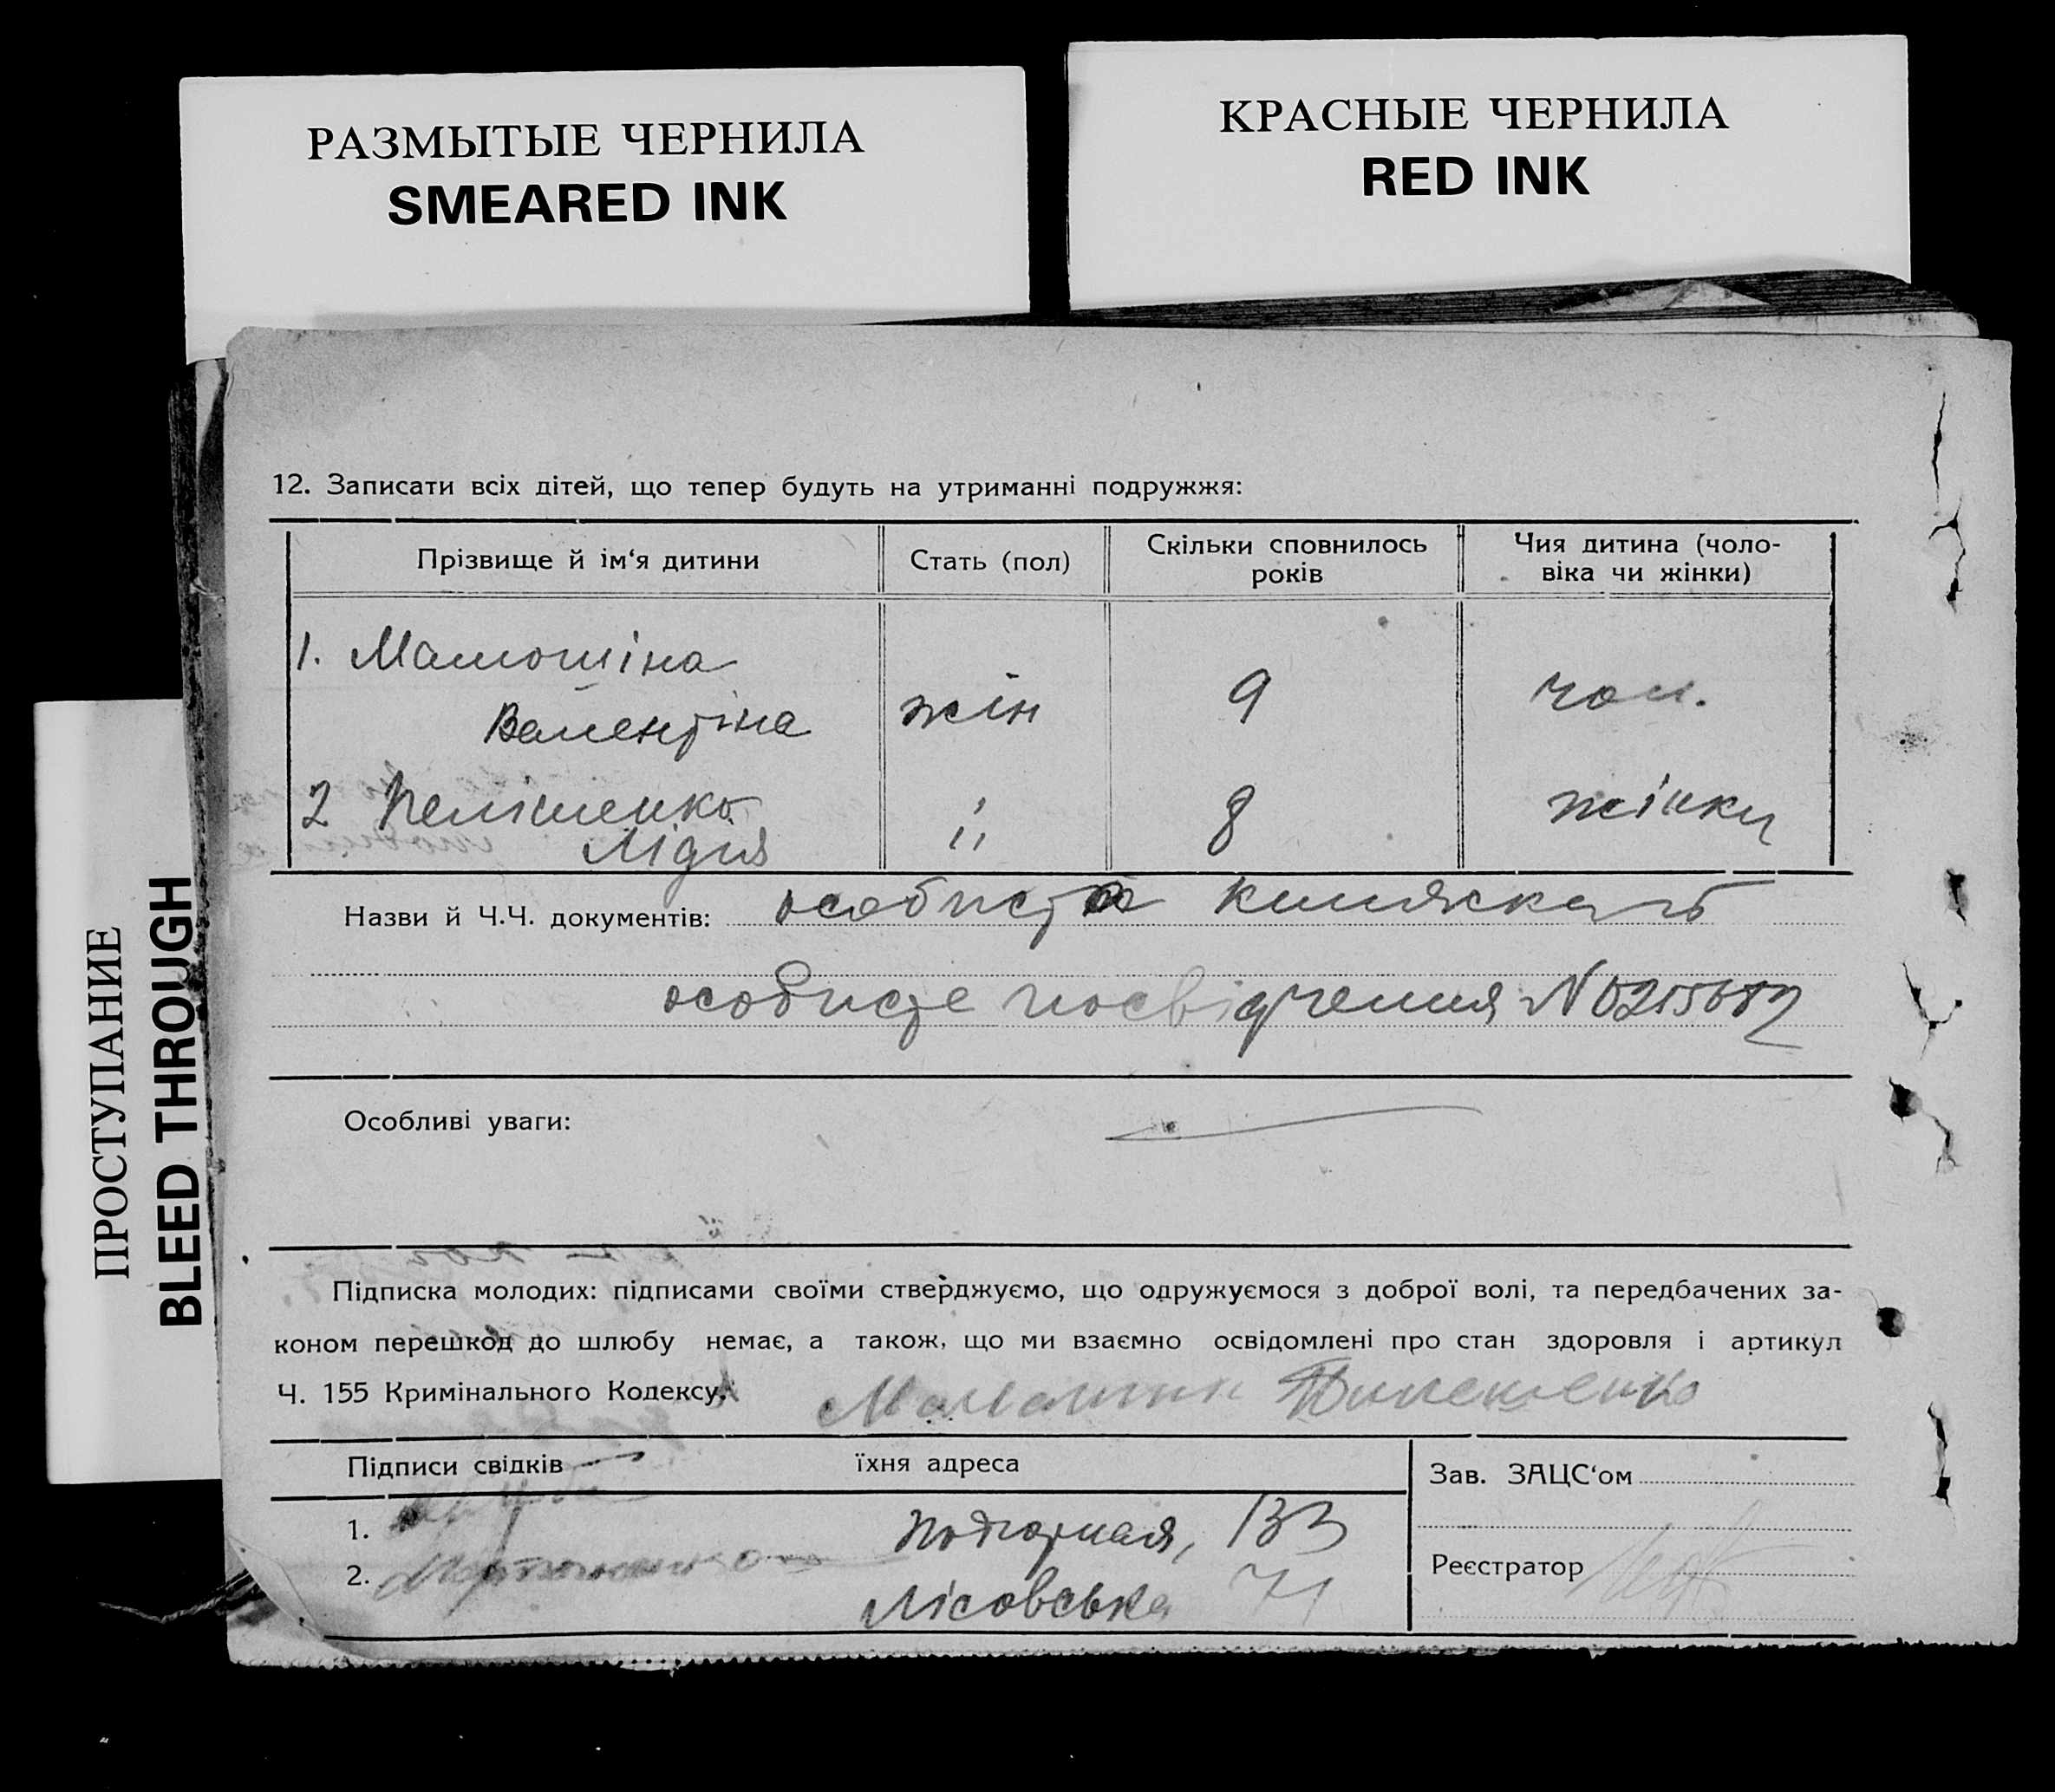 РАЗМЫТЫЕ ЧЕРНИЛА
SMEARED INK
КРАСНЫЕ ЧЕРНИЛА
RED INK
ПРОСТУПАНИЕ
BLEED THROUGH
12. Записати всіх дітей, що тепер будуть на утриманні подружжя:
Прізвище й ім‘я дитини Стать (пол) Скільки сповнилось років Чия дитина (чоловіка чи жінки)
1. Мамошіна
Валентіна жін 9 чол.
2 жінки 8
Лідия
Назви й Ч.Ч. документів: особиста книжка
особисте посвідчення N
Особливі уваги:
Підписка молодих: підписами своїми стверджуємо, що одружуємося з доброї волі, та передбачених за-
коном перешкод до шлюбу немає, а також, що ми взаємно освідомлені про стан здоровля і артикул
Ч. 155 Кримінального Кодексу.
Підписи свідків їхня адреса
Зав. ЗАЦС‘ом
1. Подгорная, 133
Реєстратор
2. Лісовська 71